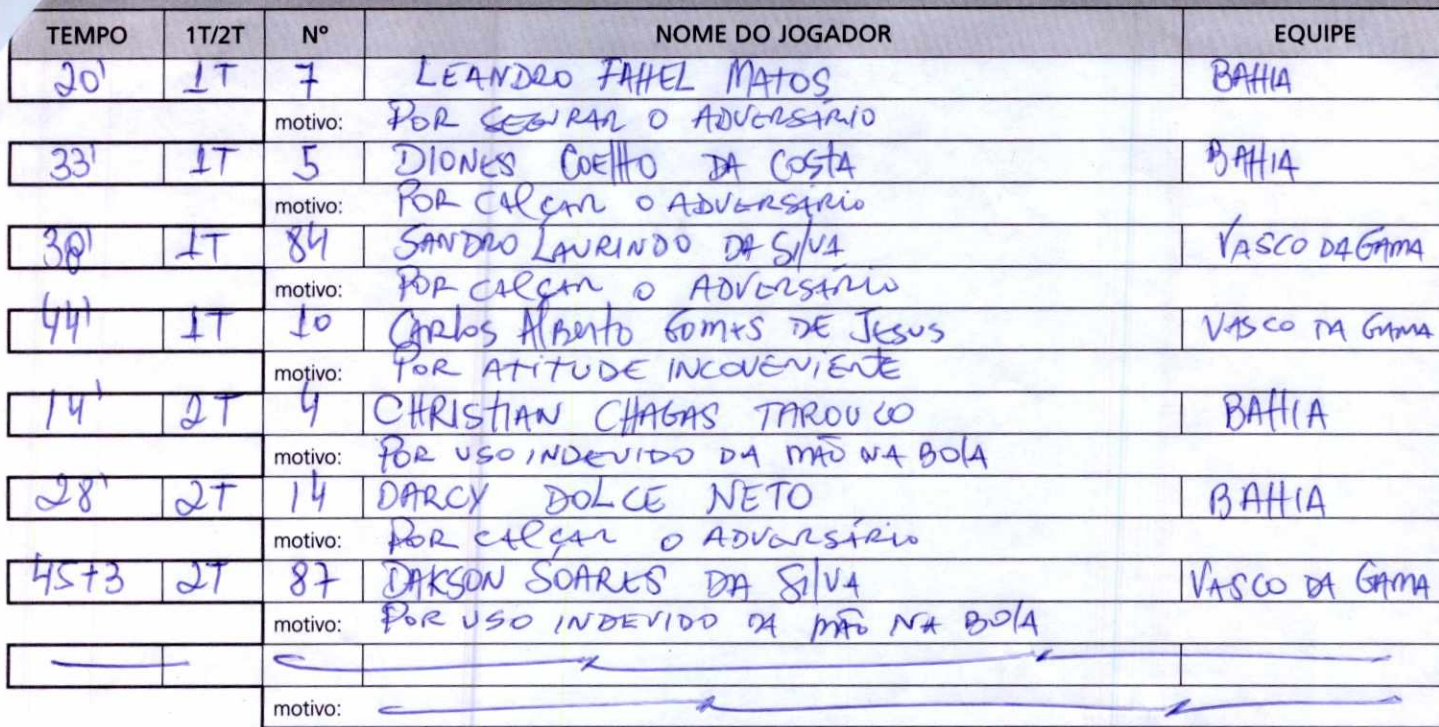 TEMPO 1T/2T Nº NOME DO JOGADOR EQUIPE
20' 1T 7 LEANDRO FAHEL MATOS BAHIA
motivo: POR SEGURAR O ADVERSÁRIO
33' 1T 5 DIONES COELHO DA COSTA BAHIA
motivo: POR CALÇAR O ADVERSÁRIO
38' 1T 84 SANDRO LAURINDO DA SILVA VASCO DA GAMA
motivo: POR CALÇAR O ADVERSÁRIO
44' 1T 10 CARLOS ALBERTO GOMES DE JESUS VASCO DA GAMA
motivo: POR ATITUDE INCOVENIENTE
14' 2T 4 CHRISTIAN CHAGAS TAROUCO BAHIA
motivo: POR USO INDEVIDO DA MÃO NA BOLA
28' 2T 14 DARCY DOLCE NETO BAHIA
motivo: POR CALÇAR O ADVERSÁRIO
45+3 2T 87 DAKSON SOARES DA SILVA VASCO DA GAMA
motivo: POR USO INDEVIDO DA MÃO NA BOLA
motivo: